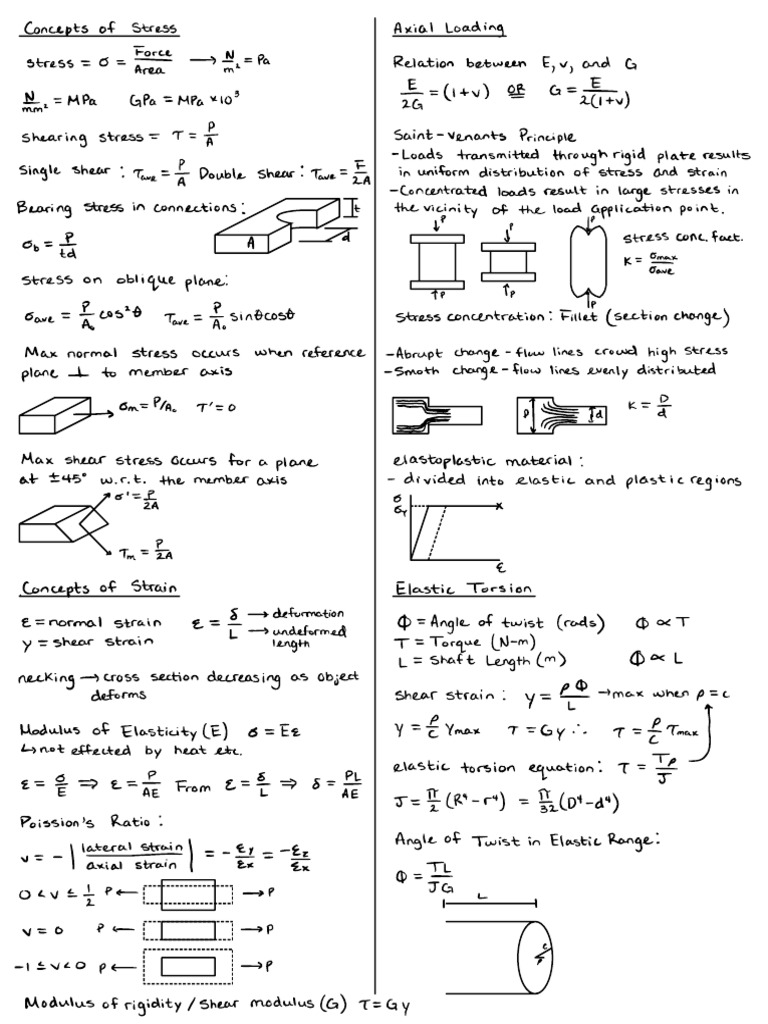 Concepts of Stress
stress = σ = Force/Area ⟶ N/m² = Pa
N/mm² = MPa GPa = MPa × 10³
shearing stress = τ = P/A
Single shear : τave = P/A Double shear : τave = F/2A
Bearing stress in connections :
t
A
d
σb = P/td
stress on oblique plane :
σave = P/A₀ cos²θ τave = P/A₀ sinθcosθ
Max normal stress occurs when reference
plane ⊥ to member axis
σm = P/A₀ τ' = 0
Max shear stress occurs for a plane
at ±45° w.r.t. the member axis
σ' = P/2A
τm = P/2A
Concepts of Strain
ε = normal strain
γ = shear strain
ε = δ/L → deformation
→ undeformed
length
necking → cross section decreasing as object
deforms
Modulus of Elasticity (E) σ = Eε
↳ not effected by heat etc.
ε = σ/E ⇒ ε = P/AE From ε = δ/L ⇒ δ = PL/AE
Poission's Ratio :
v = -|lateral strain/axial strain| = -εy/εx = -εz/εx
0 < v ≤ 1/2 P ← → P
v = 0 P ← → P
-1 ≤ v < 0 P ← → P
Modulus of rigidity / Shear modulus (G) τ = Gγ
Axial Loading
Relation between E, v, and G
E/2G = (1+v) OR G = E/2(1+v)
Saint-venants Principle
- Loads transmitted through rigid plate results
in uniform distribution of stress and strain
- Concentrated loads result in large stresses in
the vicinity of the load application point.
P P P
stress conc. fact.
K = σmax/σave
P P P
stress concentration : Fillet (section change)
- Abrupt change - flow lines crowd high stress
- Smoth change - flow lines evenly distributed
D d K = D/d
elastoplastic material :
- divided into elastic and plastic regions
σ
σY
ε
Elastic Torsion
Φ = Angle of twist (rads) Φ ∝ T
T = Torque (N-m)
L = Shaft Length (m) Φ ∝ L
shear strain : γ = ρΦ/L → max when ρ = c
γ = ρ/c γmax τ = Gγ ∴ τ = ρ/c τmax
elastic torsion equation : τ = Tρ/J
J = π/2 (R⁴ - r⁴) = π/32 (D⁴ - d⁴)
Angle of Twist in Elastic Range :
Φ = TL/JG
L
c
ρ